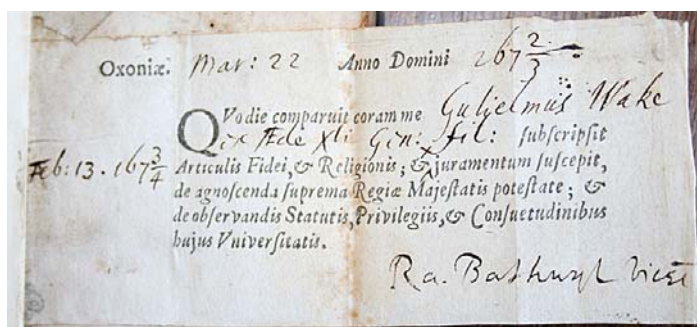 Oxoniæ. Mar: 22 Anno Domini 167 2/3
QVo die comparuit coram me Guljelmus Wake
ex Æde Xti Gen: fil: subscripsit
Feb: 13. 167 3/4
Articulis Fidei, & Religionis; & juramentum suscepit,
de agnoscenda suprema Regiæ Majestatis potestate; &
de observandis Statutis, Privilegiis, & Consuetudinibus
hujus Vniversitatis.
Ra. Bathurst Vice